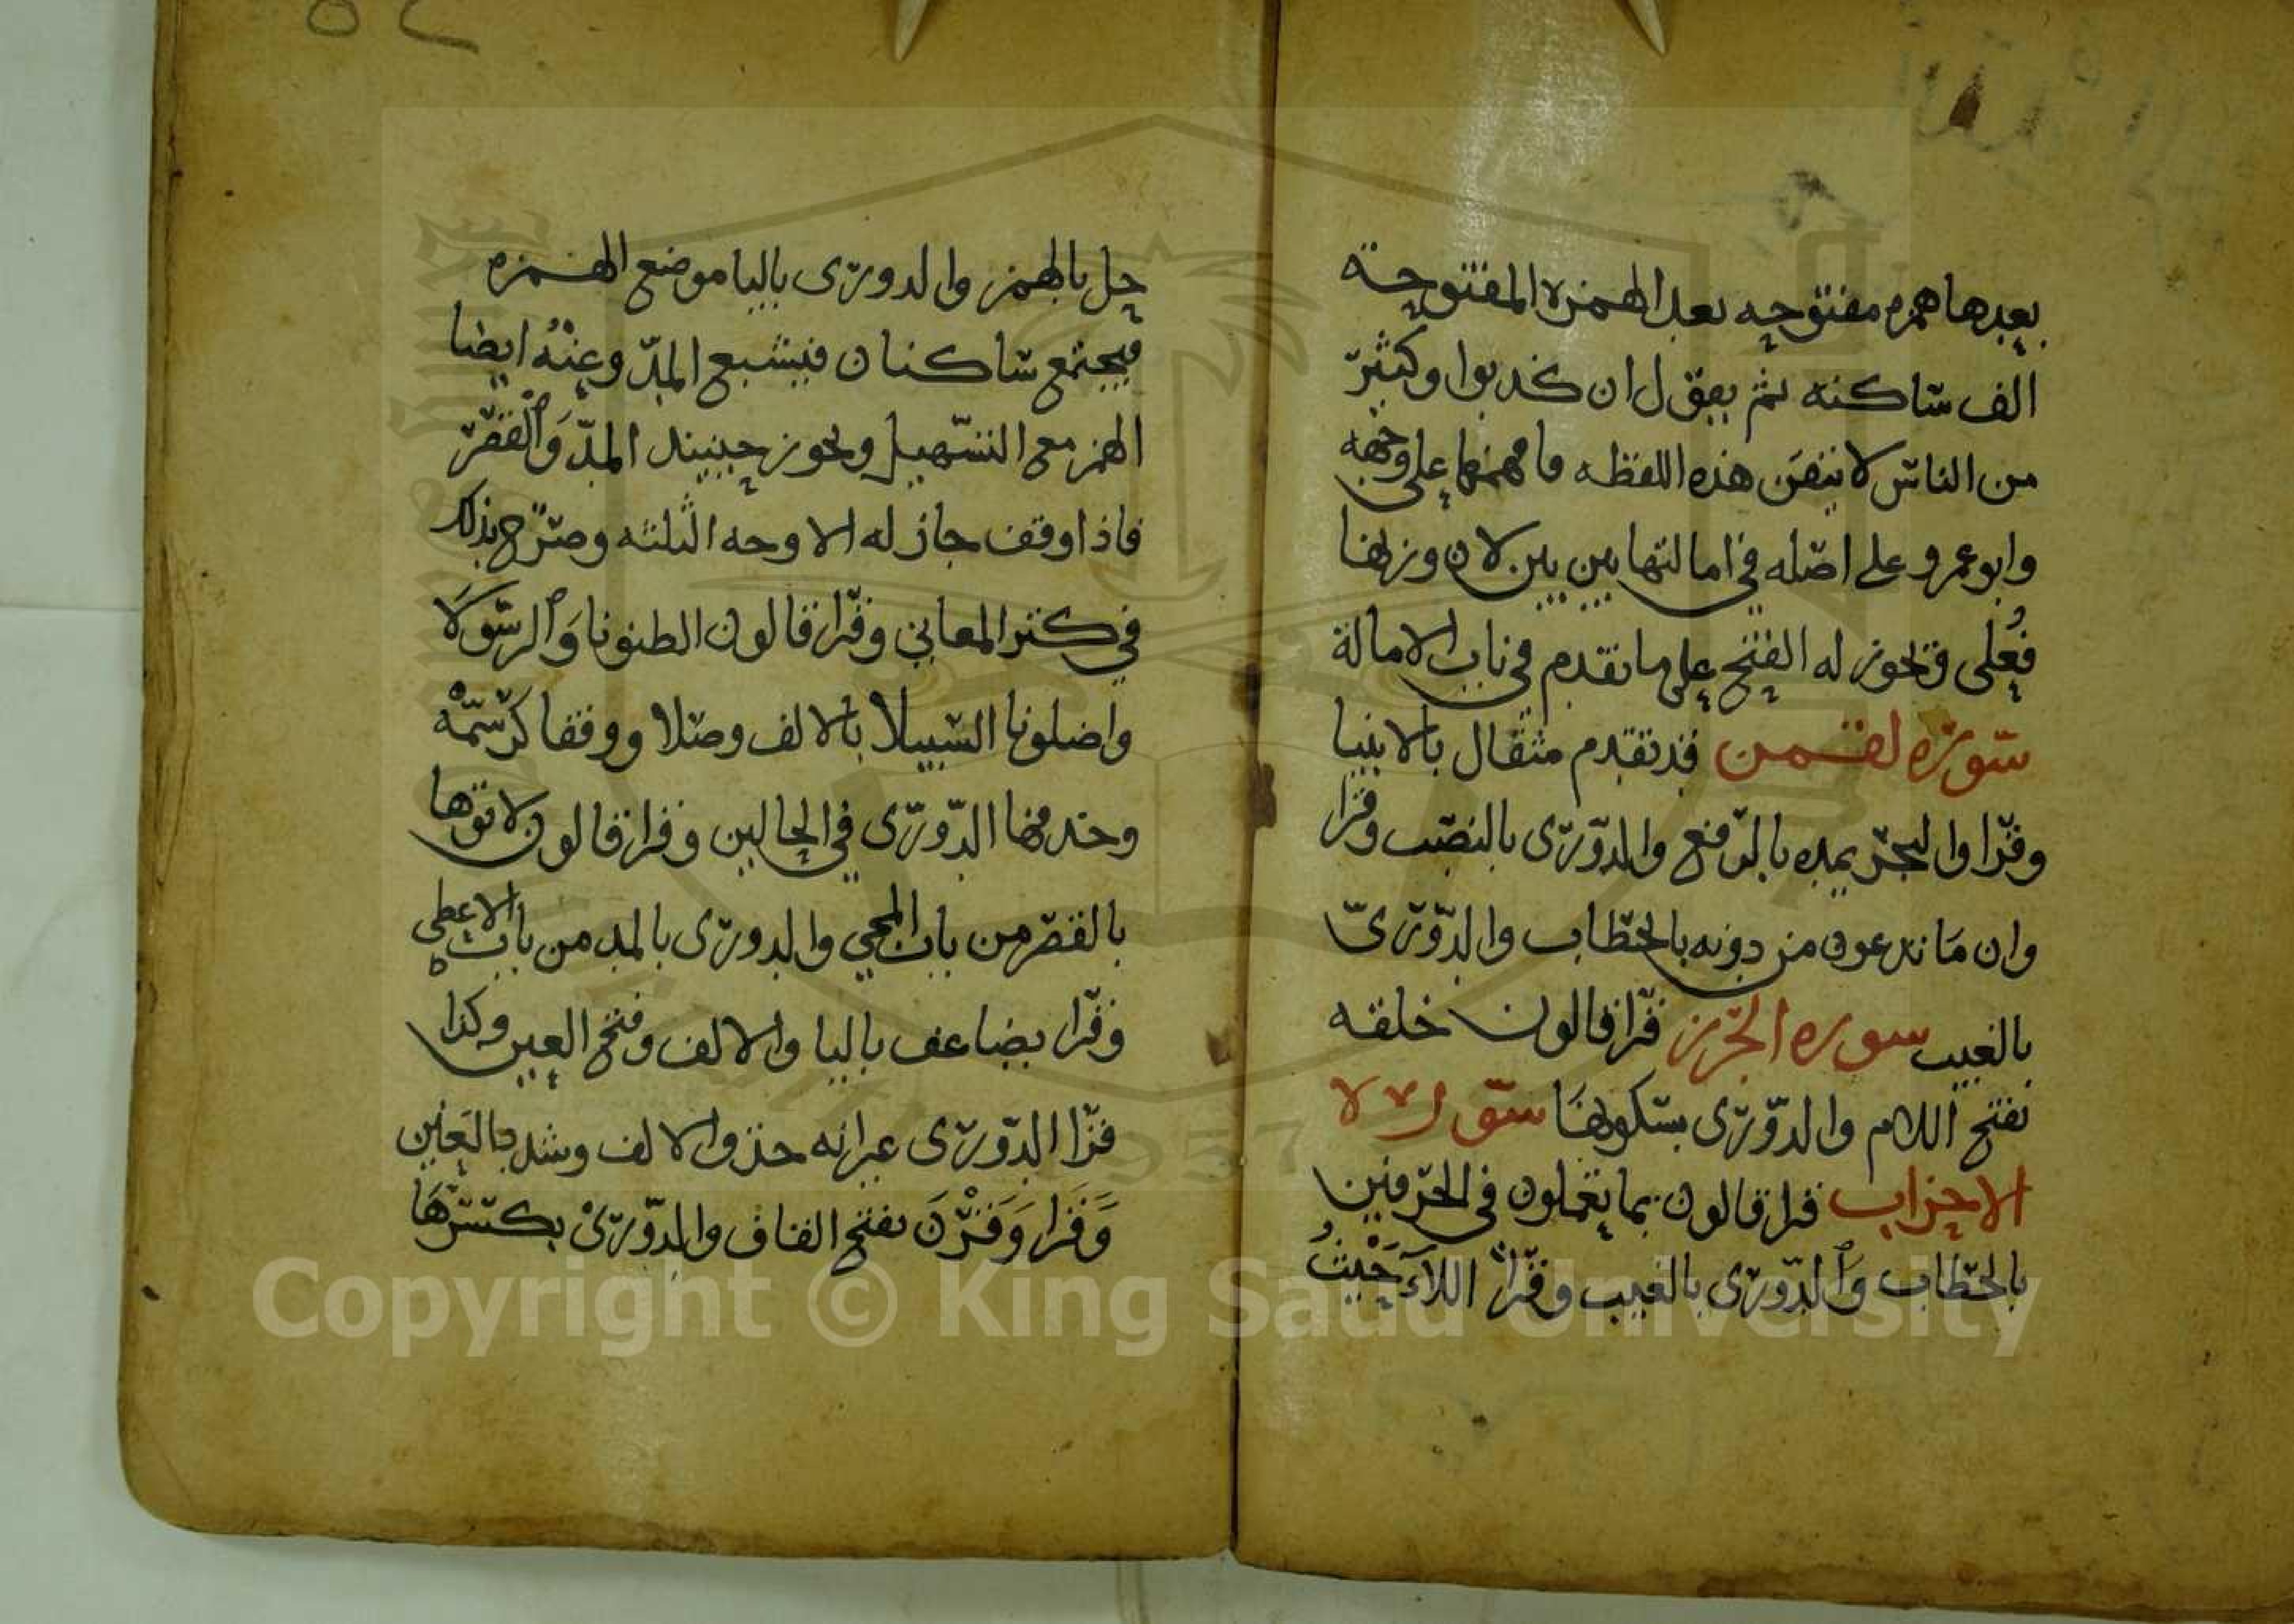 بعدها همزه مفتوحه بعد الهمزة المفتوحة
الف ساكنه ثم يقول ان كذبوا وكثير
من الناس لا يتقن هذه اللفظه فافهمها على وجهه
وابو عمرو على اصله في امالتها بين بين لان وزنها
فُعلى وتجوز له الفتح على ما تقدم في باب الامالة
سورة لقمن قد تقدم مثقال بالانبيا
وقرا والبحر يمده بالرفع والدوري بالنصب وقرا
وان مَا تدعون من دونه بالخطاب والدوريّ
بالغيب سوره الجرز قرا قالون خلقه
بفتح اللام والدوري بسكونها سورة الا
الاحزاب قرا قالون بما تعملون في الحرفين
بالخطاب وَالدوري بالغيب وقرا اللآءَ حَيْثُ
حل بالهمز والدوري باليا موضع الهمزه
فيجتمع ساكنان فيشبع المدّ وعنْهُ ايضا
الهمز مع التسهيل ويجوز حينيند المدّ وَالْقصر
فاذا وقف جاز له الاوجه الثلثه وصرح بذلك
في كنز المعاني وقرا قالون الظنونا وَالرسولَا
واضلونا السبيلا بالالف وصلا ووقفا كرسمه
وحذفها الدّوري في الحالين وقرا قالون لاتوها
بالقصر من باب المجي والدوري بالمد من باب الاعطي
وقرا يضاعف باليا والالف وفتح العين وكذا
قرا الدّوري غير انه حذف الالف وشدد العَين
وَقرا وَقَرْنَ بفتح القاف والدّوريْ بكسرهَا
Copyright © King Saud University
1957